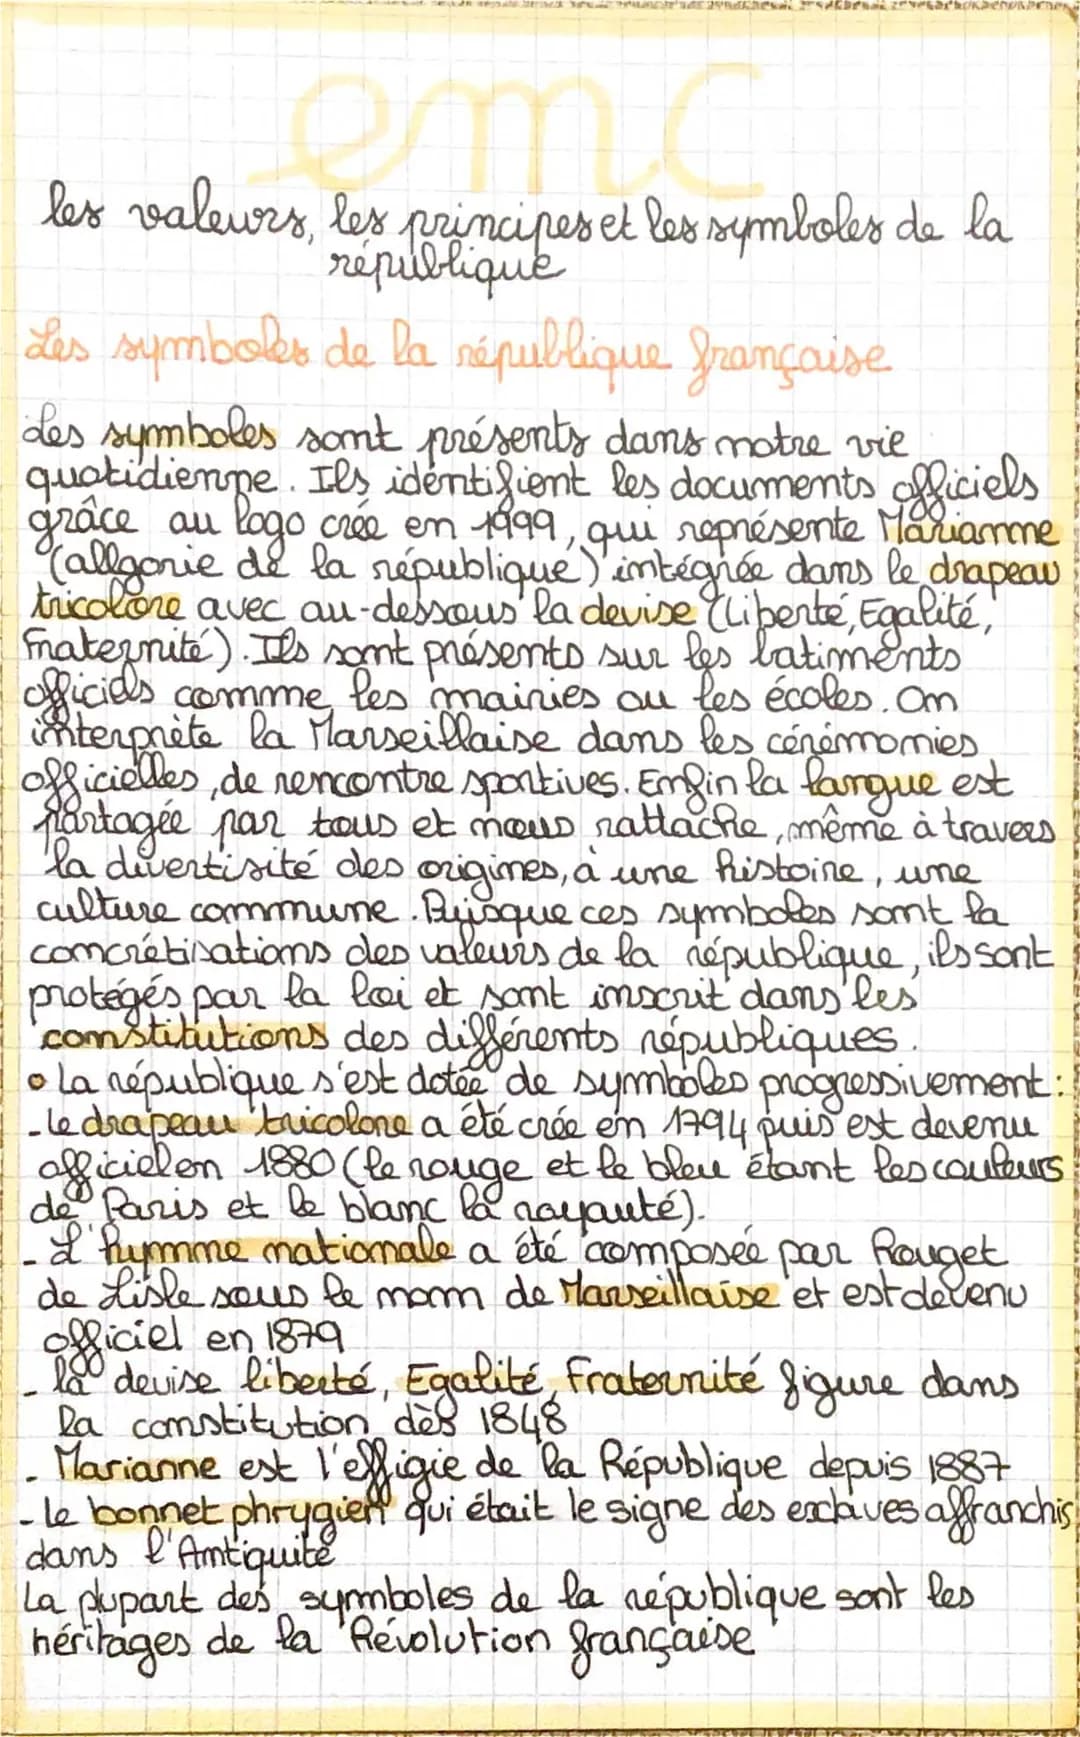 emc
les valeurs, les principes et les symboles de la
république
Les symboles de la république française
Les symboles sont présents dans notre vie
quotidienne. Ils identifient les documents officiels
grâce au logo crée en 1999, qui représente Marianne
(allgorie de la république) intégrée dans le drapeau
tricolore avec au-dessous la devise (Liberté, Egalité,
Fraternité). Ils sont présents sur les batiments
officiels comme les mairies ou les écoles. On
interprète la Marseillaise dans les cérémonies
officielles, de rencontre sportives. Enfin la langue est
partagée par tous et nous rattache, même à travers
la divertisité des origines, à une histoire, une
culture commune. Puisque ces symboles sont la
concrétisations des valeurs de la république, ils sont
protégés par la loi et sont inscrit dans les
constitutions des différents républiques.
• La république s'est dotée de symboles progressivement :
- Le drapeau tricolore a été crée en 1794 puis est devenu
officiel en 1880 (le rouge et le bleu étant les couleurs
de Paris et le blanc la royauté).
- L'hymne nationale a été composée par Rouget
de Lisle sous le nom de Marseillaise et est devenu
officiel en 1879
- la devise liberté, Egalité, Fraternité figure dans
la constitution dès 1848
- Marianne est l'effigie de la République depuis 1887
- Le bonnet phrygien qui était le signe des esclaves affranchis
dans l'Antiquité
La plupart des symboles de la république sont les
héritages de la Révolution française